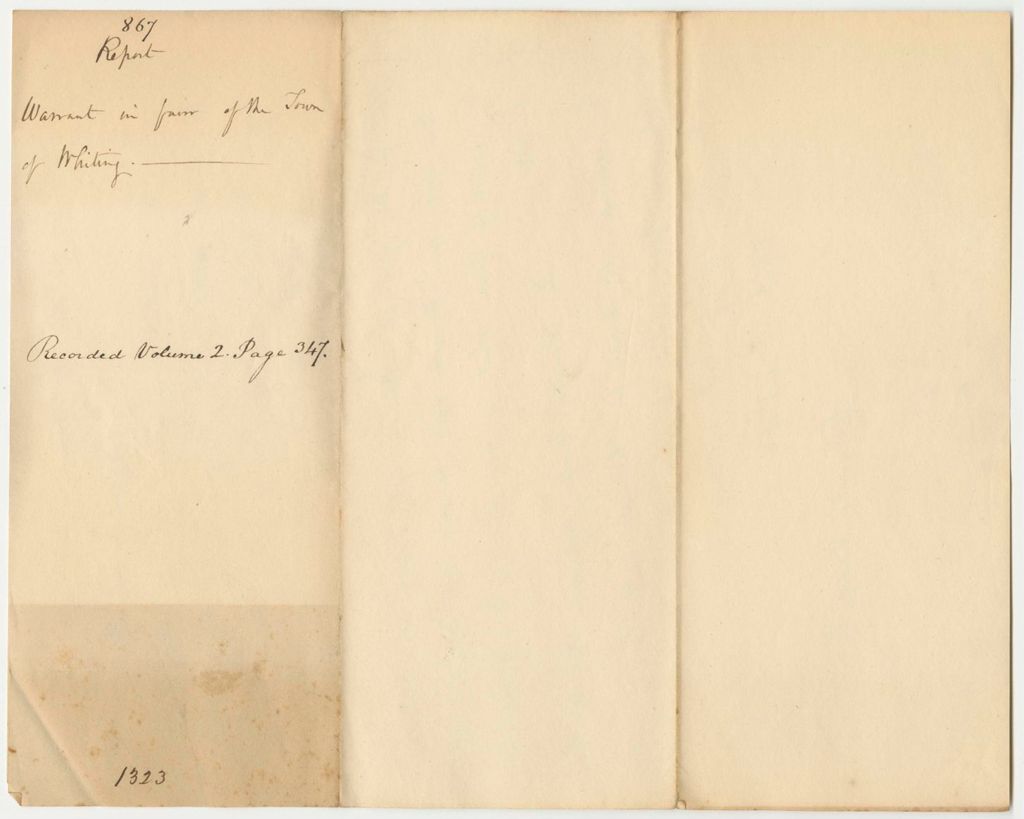 867
Report
Warrant in favor of the Town
of Whiting.
Recorded Volume 2. Page 347.
1323